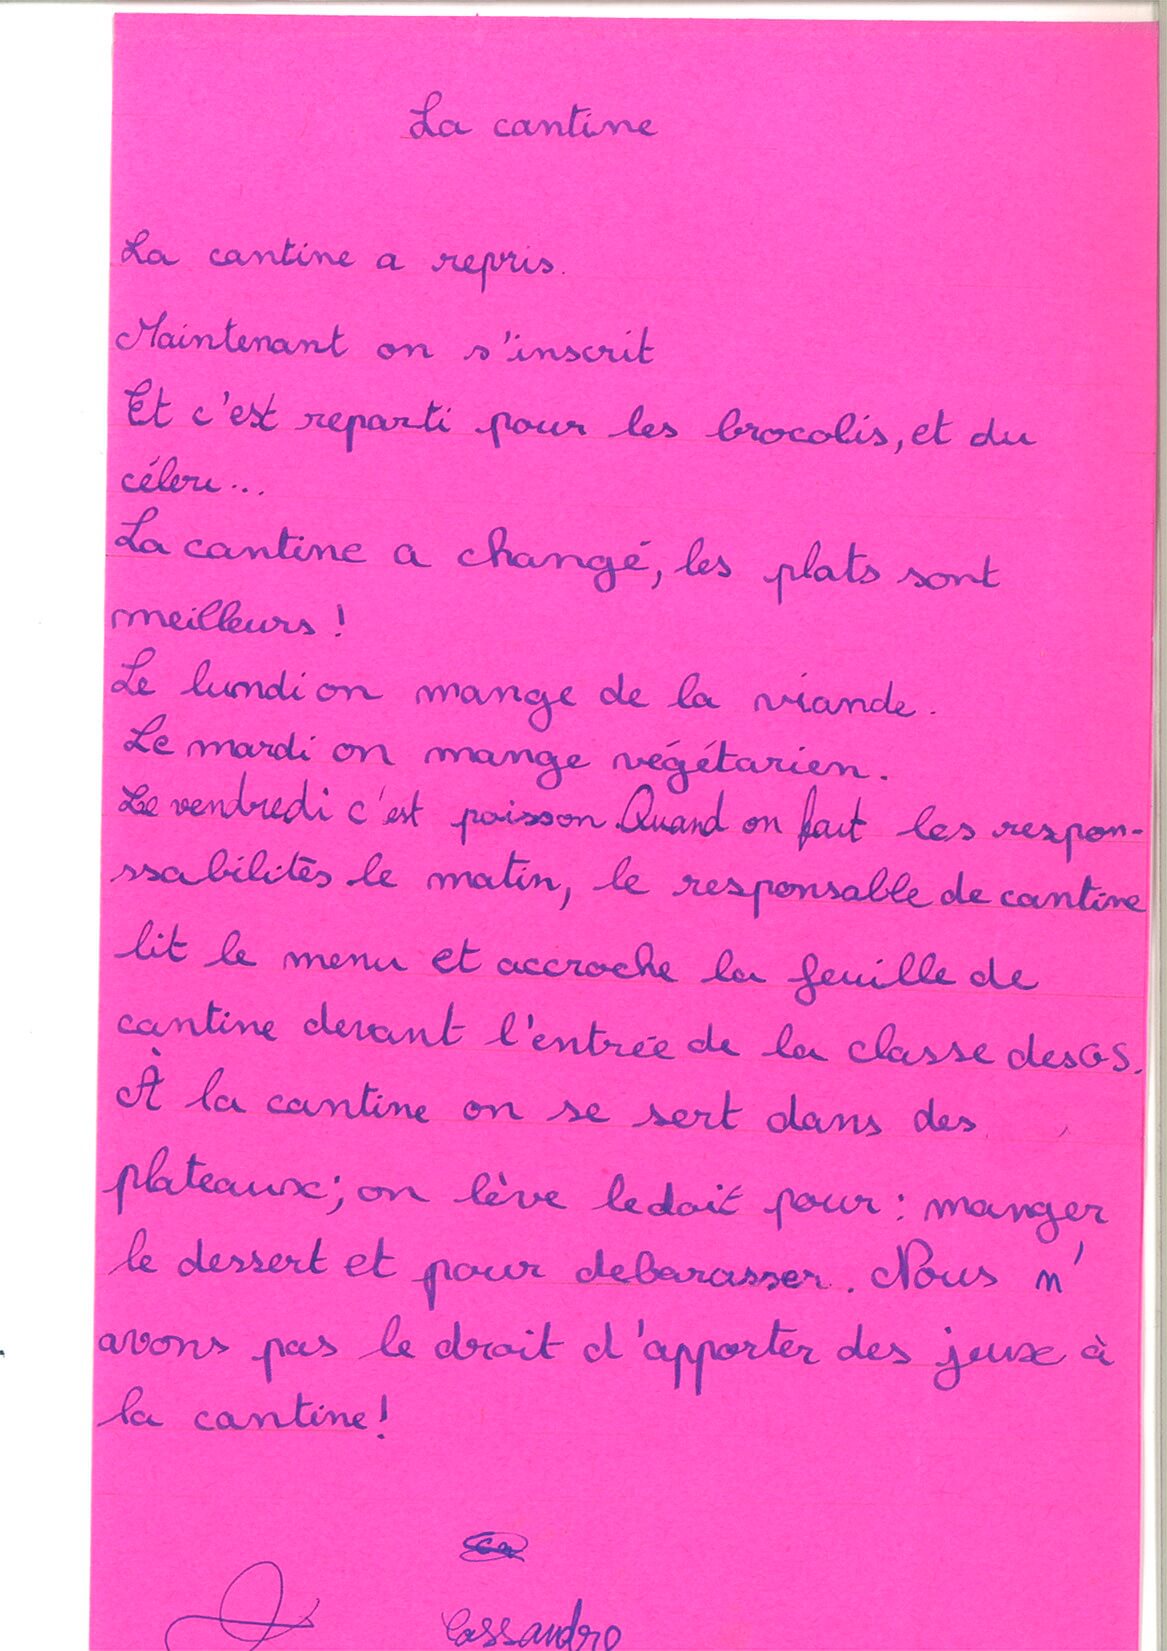 La cantine
La cantine a repris.
Maintenant on s'inscrit
Et c'est reparti pour les brocolis, et du
céleri...
La cantine a changé, les plats sont
meilleurs !
Le lundi on mange de la viande.
Le mardi on mange végétarien.
Le vendredi c'est poisson. Quand on fait les respon-
ssabilités le matin, le responsable de cantine
lit le menu et accroche la feuille de
cantine devant l'entrée de la classe des GS.
À la cantine on se sert dans des
plateaux; on lève le doit pour : manger
le dessert et pour debarasser. Nous n'
avons pas le droit d'apporter des jeux à
la cantine!
Cassandro